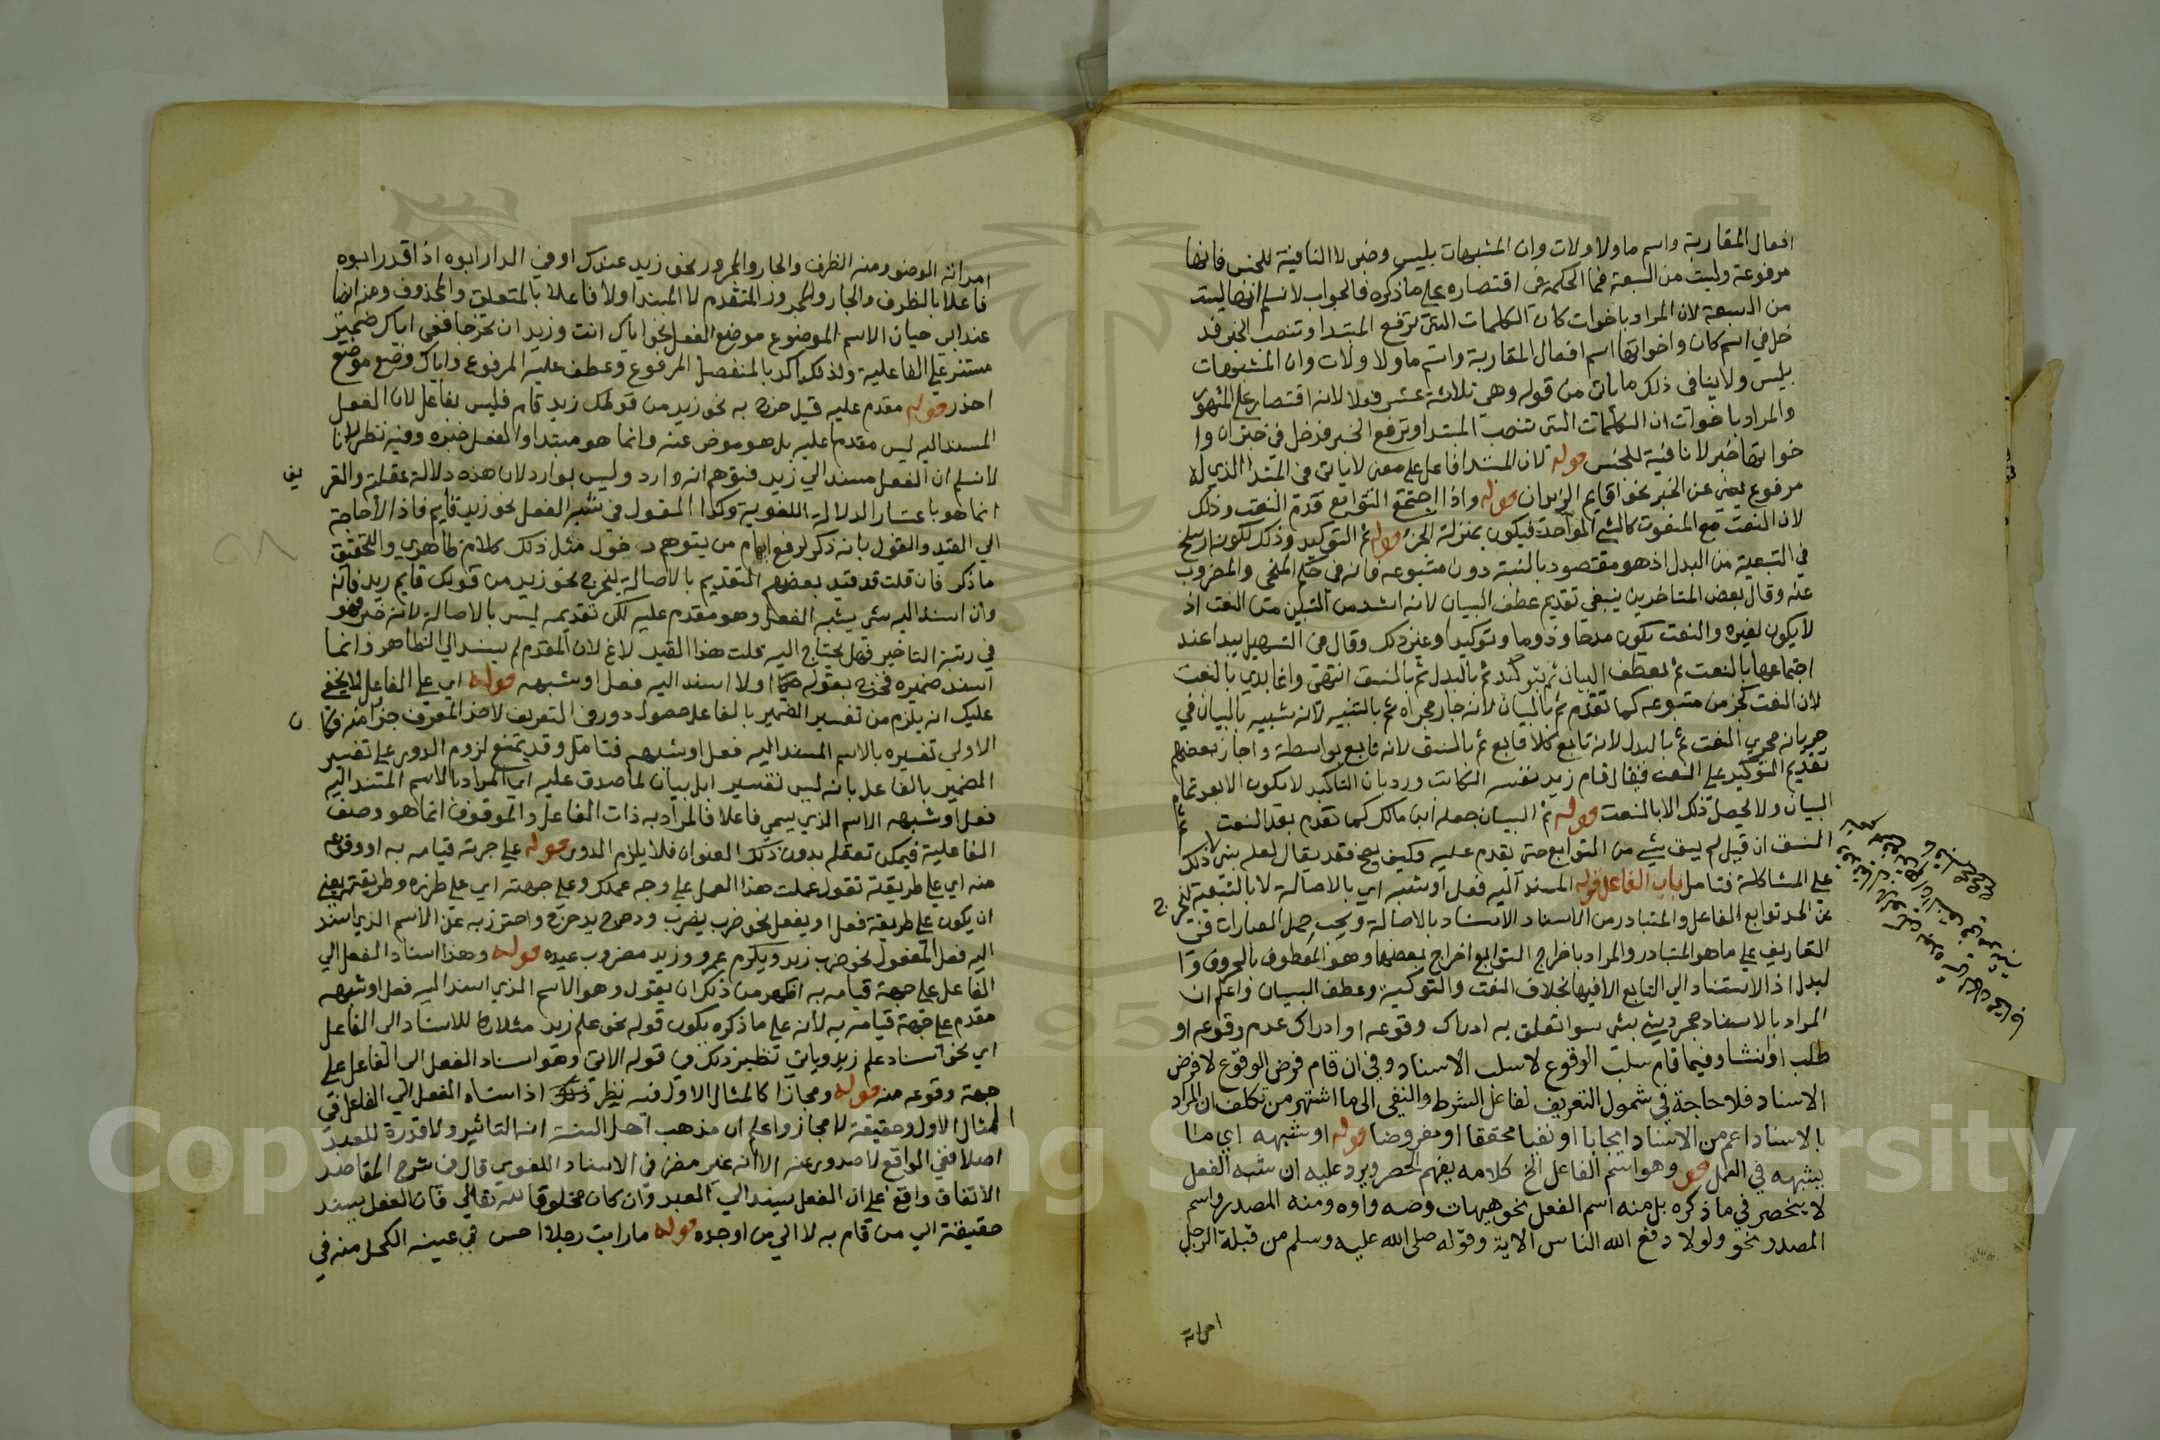 افعال المقاربة واسم ما ولا ولات وان المشبهات بليس وخبر لا النافية للجنس فانها
مرفوعة وليست من السبعة فما الحكمة في اقتصاره على ما ذكره فالجواب لا نسلم انها ليست
من السبعة لان المراد باخوات كان الكلمات التي ترفع المبتدا وتنصب الخبر فد
خل في اسم كان واخواتها اسم افعال المقاربة واسم ما ولا ولات وان المشبهات
بليس ولا ينافي ذلك ما ياتي من قوله وهي ثلاثة عشر فعلا لانه اقتصار على المشهور
والمراد باخوات ان الكلمات التي تنصب المبتدا وترفع الخبر فدخل في خبر ان وا
خواتها خبر لا نافية للجنس قوله لان المبتدا فاعل على معنى لا ياتي في المبتدا الذي له
مرفوع يغني عن الخبر نحو اقايم الزيدان قوله واذا اجتمع التوابع قدم النعت وذلك
لان النعت مع المنعوت كالشي الواحد فيكون بمنزلة الجزء قوله ثم التوكيد وذلك لكونه ارسخ
في التبعية من البدل اذ هو مقصود بالنسبة دون متبوعه فانه في حكم المنحى والمضروب
عنه وقال بعض المتاخرين ينبغي تقديم عطف البيان لانه اشد من التبيين من النعت اذ
لا يكون لغيره والنعت يكون مدحا وذما وتوكيدا وغير ذلك وقال في التسهيل يبدا عند
اجتماعها بالنعت ثم بعطف البيان ثم بتوكيد ثم بالبدل ثم بالنسق انتهى وانما بدي بالنعت
لان النعت كجزء من متبوعه كما تقدم ثم بالبيان لانه جار مجراه ثم بالتنبيه لانه شبيه بالبيان في
جريانه مجرى النعت ثم بالبدل لانه تابع كلا تابع ثم بالنسق لانه تابع بواسطة واجاز بعضهم
تقديم التوكيد على النعت فيقال قام زيد نفسه الكاتب ورد بان التاكيد لا يكون الا بعد تمام
البيان ولا يحصل ذلك الا بالنعت قوله ثم البيان جعله ابن مالك كما تقدم بعد النعت ثم
النسق ان قيل لم يبق شي من التوابع حتى يقدم عليه وكيف يصح فقد يقال لعله بنى ذلك
على المشاكلة فتامل باب الفاعل قوله المسند اليه فعل او شبهه اي بالاصالة لا بالتبعية ليخرج
عن الحد توابع الفاعل والمتبادر من الاسناد الاسناد بالاصالة ويجب حمل العبارات في
التعاريف على ما هو المتبادر والمراد باخراج التوابع اخراج بعضها وهو المعطوف بالحروف وا
لبدل اذ الاستناد الى التابع الا فيها بخلاف النعت والتوكيد وعطف البيان واعلم ان
المراد بالاسناد مجرد شي بشي سوا تعلق به ادراك وقوعه او ادراك عدم وقوعه او
طلب او انشا وفيما قام سلب الوقوع لا سلب الاسناد وفي ان قام فرض الوقوع لا فرض
الاسناد فلا حاجة في شمول التعريف لفاعل الشرط والنفي الى ما اشتهر من تكلف ان المراد
بالاسناد اعم من الاسناد ايجابا او نفيا محققا او مفروضا قوله او شبهه اي ما
يشبهه في العمل قوله وهو اسم الفاعل الخ كلامه يفهم الحصر ويرد عليه ان شبه الفعل
لا ينحصر في ما ذكره بل منه اسم الفعل نحو هيهات وصه واوه ومنه المصدر واسم
المصدر نحو ولولا دفع الله الناس الاية وقوله صلى الله عليه وسلم من قبلة الرجل
امراته
امراته الوضوء ومنه الظرف والجار والمجرور نحو زيد عندك او في الدار ابوه اذا قدر ابوه
فاعلا بالظرف والجار والمجرور المتقدم لا المبتدا ولا فاعلا بالمتعلق والمحذوف ومنه ايضا
عند ابي حيان الاسم الموضوع موضع الفعل نحو اياك انت وزيد ان تخرجا ففي اياك ضمير
مستتر على الفاعلية ولذلك اكد بالمنفصل المرفوع وعطف عليه المرفوع واياك وضع موضع
احذر قوله مقدم عليه قيل خرج به نحو زيد من قولك زيد قام فليس بفاعل لان الفعل
المسند اليه ليس مقدما عليه بل هو موخر عنه وانما هو مبتدا والفعل خبره وفيه نظر لانا
لا نسلم ان الفعل مسند الى زيد فتوهم انه وارد وليس بوارد لان هذه دلالة عقلية والتعر يف
انما هو باعتبار الدلالة اللغوية وكذا المقول في شبه الفعل نحو زيد قايم فاذا لا حاجة
الى القيد والقول بانه ذكر لرفع ايهام من يتوهم دخول مثل ذلك كلام ظاهري والتحقيق
ما ذكر فان قلت قد قيد بعضهم التقديم بالاصالة ليخرج نحو زيد من قولك قايم زيد فانه
وان اسند اليه شي يشبه الفعل وهو مقدم عليه لكن تقديمه ليس بالاصالة لانه خبر فهو
في رتبة التاخير فهل يحتاج اليه قلت هذا القيد لاغ لان المقدم لم يسند الى الظاهر وانما
اسند ضميره فخرج بقوله اولا اسند اليه فعل او شبهه قوله اي على الفاعل لا يخفى
عليك انه يلزم من تفسير الضمير بالفاعل حصول دور في التعريف لاخذ المعرف جزا منه وكا ن
الاولى تفسيره بالاسم المسند اليه فعل او شبهه فتامل وقد يمنع لزوم الدور على تفسير
الضمير بالفاعل بانه ليس تفسير ابل بيان لما صدق عليه اي المراد بالاسم المسند اليه
فعل او شبهه الاسم الذي يسمى فاعلا فالمراد به ذات الفاعل والموقوف انما هو وصف
الفاعلية فيمكن تعقله بدون ذلك العنوان فلا يلزم الدور قوله على جهة قيامه به او وقوعه
منه اي على طريقة تقول عملت هذا العمل على وجه عملك وعلى جهته اي على طرزه وطريقته يعني
ان يكون على طريقة فعل او يفعل نحو ضرب يضرب ودحرج يدحرج واحترز به عن الاسم الذي اسند
اليه فعل المفعول نحو ضرب زيد ويكرم عمرو وزيد مضروب عبده قوله وهذا اسناد الفعل الى
الفاعل على جهة قيامه به اظهر من ذلك ان يقول وهو الاسم الذي اسند اليه فعل او شبهه
مقدم على جهة قيامه به لانه على ما ذكره يكون قوله نحو علم زيد مثلا للاسناد الى الفاعل
اي نحو اسناد علم زيد وياتي تنظير ذلك في قوله الاتي وهو اسناد الفعل الى الفاعل على
جهة وقوعه منه قوله ومجازا كالمثال الاول فيه نظر اذ اسناد الفعل الى الفاعل في
المثال الاول حقيقة لا مجاز واعلم ان مذهب اهل السنة ان التاثير ولا قدرة للعبد
اصلا ففي الواقع لا صدور عنه الا انه غير مضر في الاسناد اللغوي قال في شرح المقاصد
الاتفاق واقع على ان الفعل يسند الى العبد وان كان مخلوقا لله تعالى فان الفعل يسند
حقيقة الى من قام به لا الى من اوجده قوله ما رايت رجلا احسن في عينه الكحل منه في